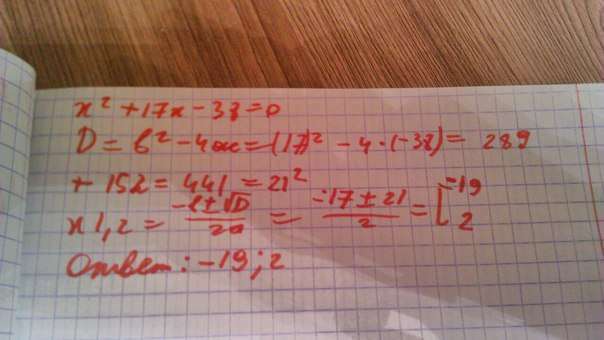 x² + 17x - 38 = 0
D = b² - 4ac = (17)² - 4·(-38) = 289
+ 152 = 441 = 21²
x1,2 = (-b ± √D)/2a = (-17 ± 21)/2 = [-19 2
Ответ: -19; 2